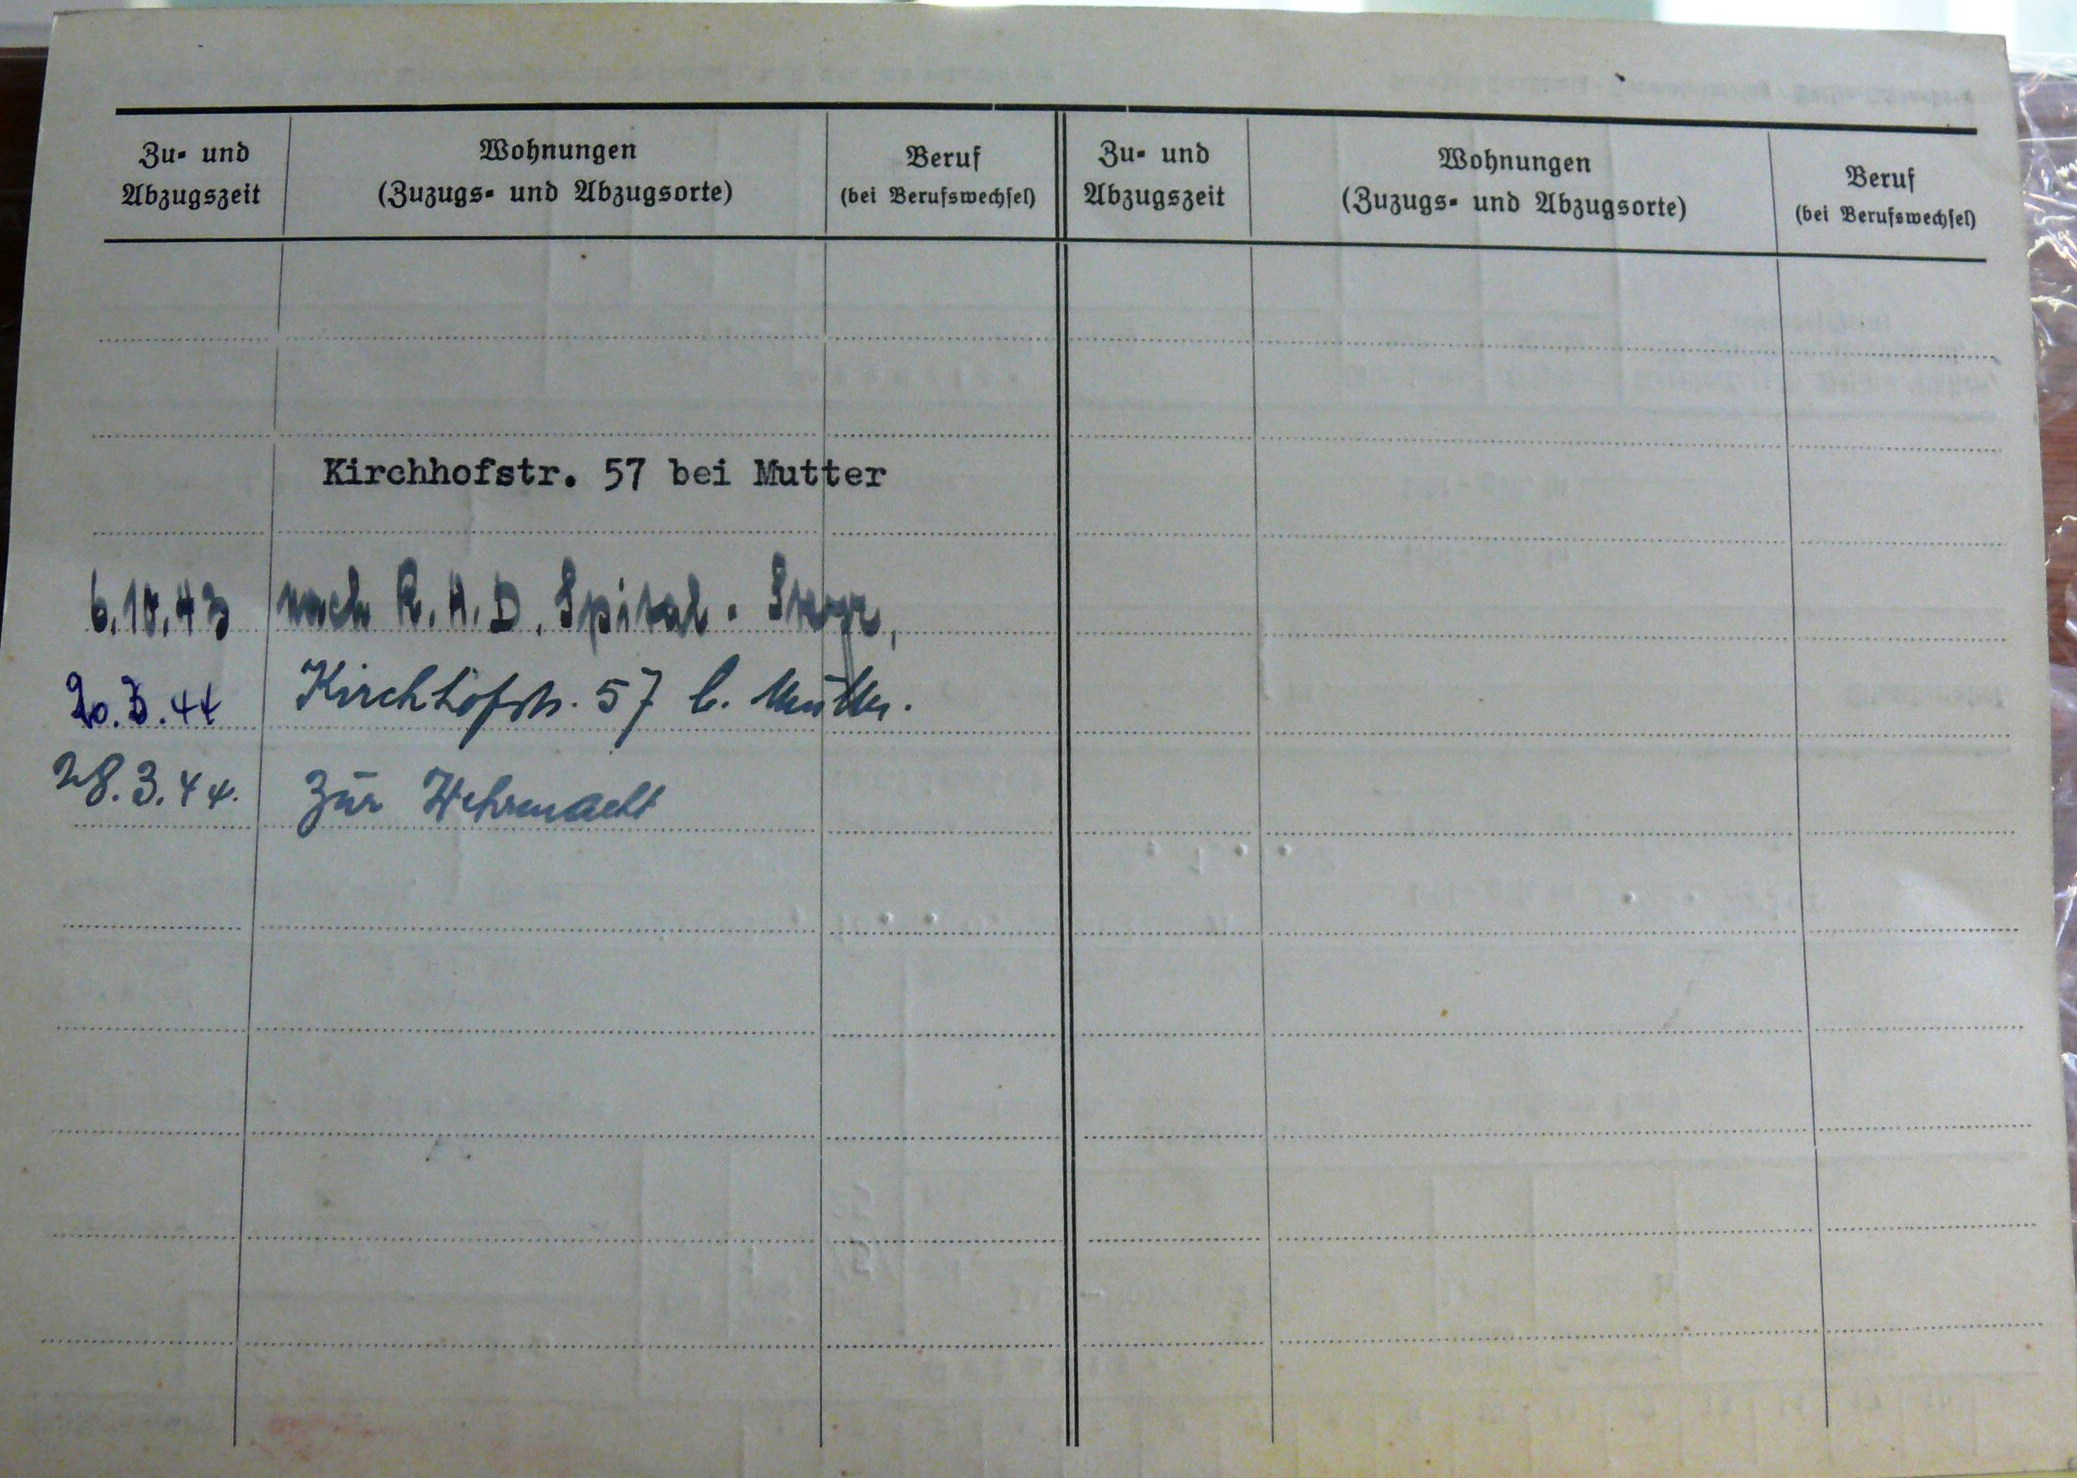 Zu- und Abzugszeit
Wohnungen (Zuzugs- und Abzugsorte)
Beruf (bei Berufswechsel)
Zu- und Abzugszeit
Wohnungen (Zuzugs- und Abzugsorte)
Beruf (bei Berufswechsel)
Kirchhofstr. 57 bei Mutter
6.10.43 nach R.A.D. Spital - Steyr,
20.3.44 Kirchhofstr. 57 b. Mutter.
28.3.44. Zur Wehrmacht